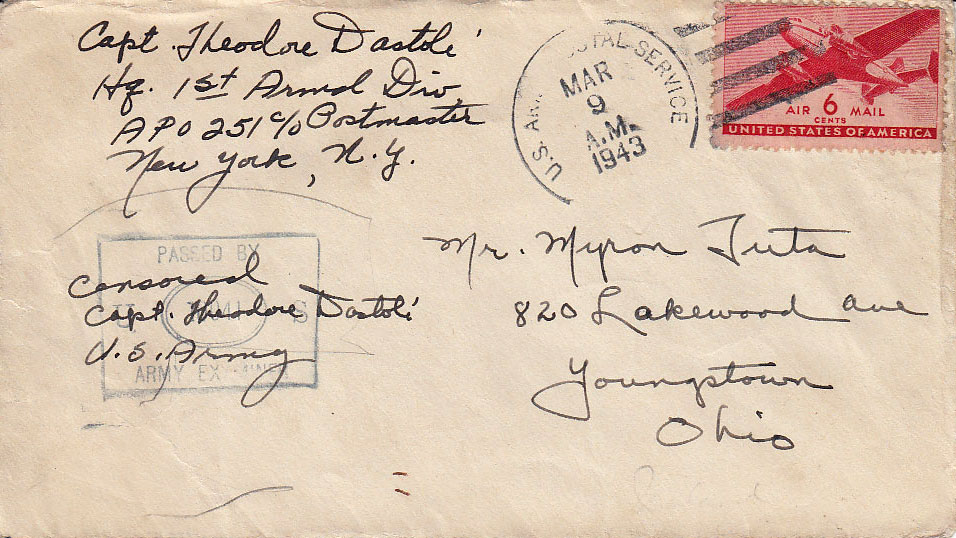 Capt. Theodore Dastoli
Hq. 1st Armd Div
APO 251 c/o Postmaster
New York, N.Y.
U.S. POSTAL SERVICE
MAR
9
A.M.
1943
AIR 6 MAIL
CENTS
UNITED STATES OF AMERICA
PASSED BY
S
ARMY
Censored
Capt. Theodore Dastoli
U.S. Army
Mr. Myron Tuta
820 Lakewood Ave
Youngstown
Ohio